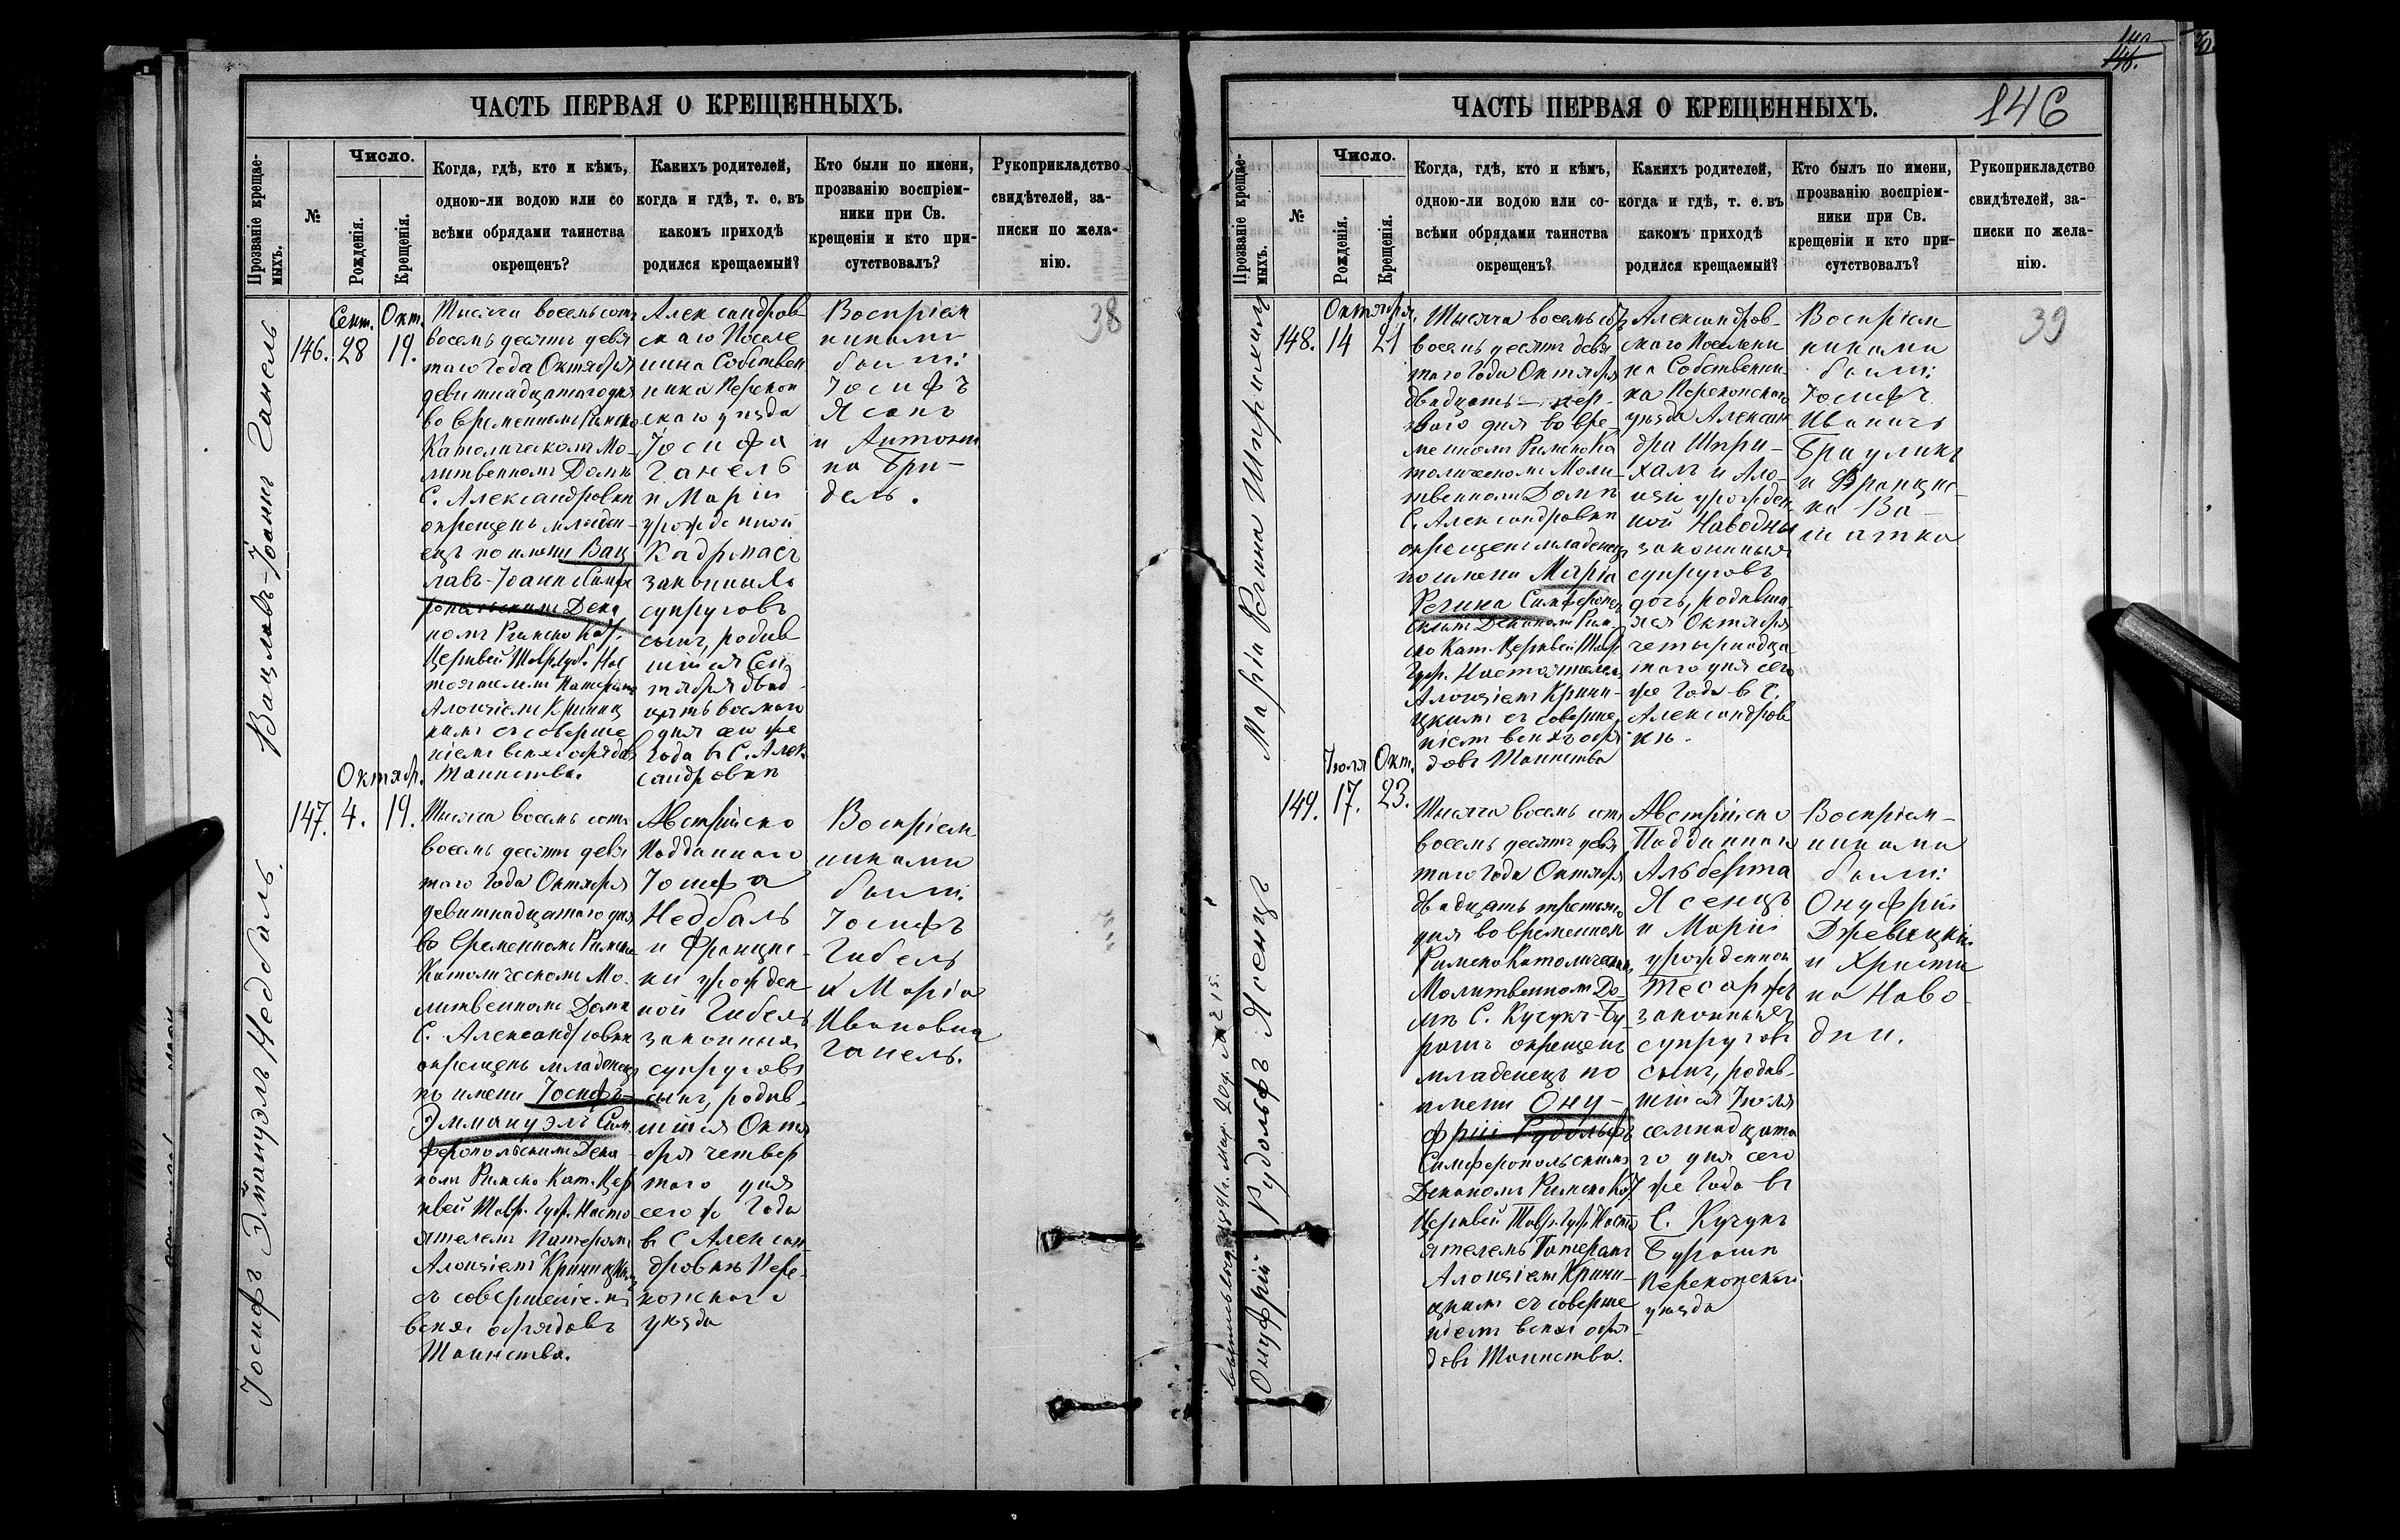 ЧАСТЬ ПЕРВАЯ О КРЕЩЕННЫХЪ.
Прозваніе крещае-
мыхъ.
№
Число.
Рожденія.
Крещенія.
Когда, гдѣ, кто и кѣмъ,
одною-ли водою или со
всѣми обрядами таинства
окрещенъ?
Какихъ родителей,
когда и гдѣ, т. е. въ
какомъ приходѣ
родился крещаемый?
Кто были по имени,
прозванію воспріем-
ники при Св.
крещеніи и кто при-
сутствовалъ?
Рукоприкладство
свидѣтелей, за-
писки по жела-
нію.
Вацлавъ-Іоаннъ Ганель
146.
Сент.
28
Окт.
19.
Тысяча восемьсотъ
восемь десятъ девя
таго Года Октября
девятнадцатого дня
во временномъ Римско
Католическомъ Мо-
литвенномъ Домѣ
С. Александровки
окрещенъ младен-
ецъ по имени Вац
лавъ-Іоаннъ Симфе
ропольскимъ Дека
номъ Римско Кат.
Церквей Тавр. Губ. Нас
тоятелемъ Патеромъ
Алоизіемъ Криниц
кимъ съ соверше
ніемъ всехъ обрядовъ
Таинства.
Александров
скаго Поселе
нина Собствен
ника Перекоп
скаго уезда
Іосифа
Ганель
и Маріи
урожденной
Кадрмасъ
законныхъ
супруговъ
сынъ, родив
шійся Сен
тября двад
цать восмого
дня сего же
Года въ С. Алек
сандровки
Воспріем
никами
были:
Іосифъ
Ясанъ
и Антони
на Бри-
дель.
38
Іосифъ Эммануэлъ Недбаль.
147.
Октяб.
4.
19.
Тысяча восемь сотъ
восемь десятъ девя
таго Года Октября
девятнадцатого дня
во временномъ Римско
Католическомъ Мо-
литвенномъ Домѣ
С. Александровки
окрещенъ младенецъ
по имени Іосифъ-
Эммануэлъ Сим-
феропольскимъ Дека
номъ Римско Кат. Цер
квей Тавр. Губ. Насто
ятелемъ Патеромъ
Алоизіемъ Криницкимъ
съ совершеніемъ
всехъ обрядовъ
Таинства.
Австрійско
Подданнаго
Іосифа
Недбаль
и Францис-
ки урожден
ной Гибель
законныхъ
супруговъ
сынъ, родив-
шійся Октя
бря четвер
таго дня
сего же Года
въ С Алексан
дровкѣ Пере-
копскаго
уѣзда
Воспріем
никами
были:
Іосифъ
Гибель
и Марія
Ивановна
Ганель.
140
146.
ЧАСТЬ ПЕРВАЯ О КРЕЩЕННЫХЪ.
146
Прозваніе крещае-
мыхъ.
№
Число.
Рожденія.
Крещенія.
Когда, гдѣ, кто и кѣмъ,
одною-ли водою или со-
всѣми обрядами таинства
окрещенъ?
Какихъ родителей,
когда и гдѣ, т. е. въ
какомъ приходѣ
родился крещаемый?
Кто былъ по имени,
прозванію воспріем-
ники при Св.
крещеніи и кто при-
сутствовалъ?
Рукоприкладство
свидѣтелей, за-
писки по жела-
нію.
Марія Регина Шпрыхалъ
148.
Октября.
14
21
Тысяча восемь сотъ
восемь десятъ девя
таго Года Октября
двадцать-пер-
ваго дня во вре-
менномъ Римско Ка
толическомъ Моли-
твенномъ Домѣ
С. Александровки
окрещенъ младенецъ
по имени Марія
Регина Симферополь
скимъ Деканомъ Рим-
ско Кат. Церквей Тавр.
Губ. Настоятелемъ
Алоизіемъ Крини-
цкимъ съ соверше-
ніемъ всехъ обря-
довъ Таинства
Александров-
скаго Поселени
на Собственни-
ка Перекопскаго
уезда Алексан
дра Шпри-
халъ и Ало-
изіи урожден
ной Наводны
законныхъ
супруговъ
дочь, родивша-
яся Октября
четырнадца-
таго дня сего
же Года въ С.
Александров
кѣ.
Воспріем
никами
были:
Іосифъ
Иванычъ
Браулинъ
и Францис-
ка Ва-
шатка
39
Онуфрій Рудольфъ Ясенцъ
149.
Іюля
17.
Окт.
23.
Тысяча восемь сотъ
восемь десятъ девя
таго Года Октября
двадцать третьяго
дня во временномъ
Римско Католическомъ
Молитвенномъ До-
мѣ С. Кучукъ-Бу-
рашъ окрещенъ
младенецъ по
имени Ону-
фрій Рудольфъ
Симферопольскимъ
Деканомъ Римско Кат
Церквей Тавр. Губ. Насто
ятелемъ Патеромъ
Алоизіемъ Крини-
цкимъ съ соверше
ніемъ всехъ обря-
довъ Таинства.
Австрійско
Подданнаго
Альберта
Ясенцъ
и Маріи
урожденной
Тесаржъ
законныхъ
супруговъ
сынъ, родив-
шійся Іюля
семнадцата
го дня сего
же Года въ
С. Кучукъ
Бурашъ
Перекопскаго
уезда
Воспріем-
никами
были:
Онуфрій
Држевицкій
и Христи
на Наво-
дни.